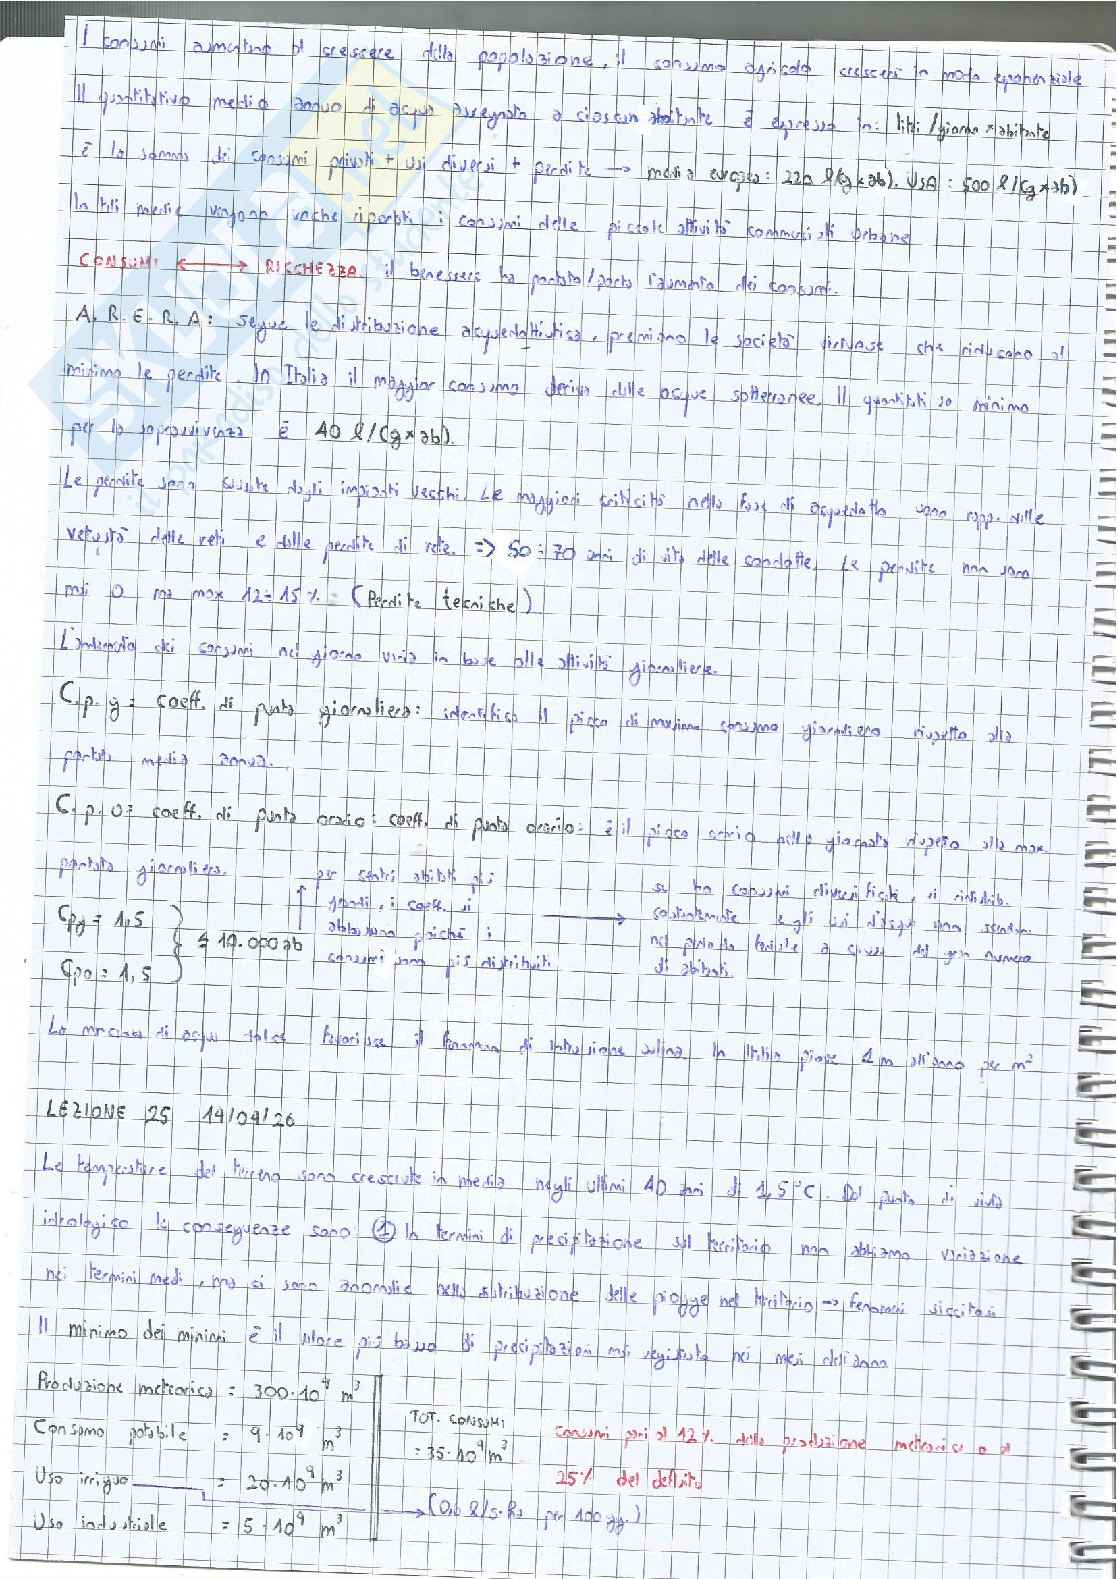 I consumi aumentano al crescere della popolazione, il consumo agricolo crescerà in modo esponenziale
Il quantitativo medio annuo di acqua assegnato a ciascun abitante è espresso in: litri/giorno × abitante
È la somma dei consumi privati + usi diversi + perdite → media europea: 220 l/(g×ab). USA: 500 l/(g×ab)
In tali medie vengono anche riportati i consumi delle piccole attività commerciali urbane
CONSUMI ↔ RICCHEZZA il benessere ha portato/porta l'aumento dei consumi.
A.R.E.R.A: segue la distribuzione acquedottistica, premiano le società che riducono al
minimo le perdite. In Italia il maggior consumo deriva dalle acque sotterranee. Il quantitativo minimo
per la sopravvivenza è 40 l/(g×ab).
Le perdite sono causate dagli impianti vecchi. Le maggiori criticità nella fase di acquedotto sono rapp. dalle
vetustà delle reti e dalle perdite di rete. => 50÷70 anni di vita delle condotte. Le perdite non sono
mai 0 ma max 12÷15% = (Perdite tecniche)
L'andamento dei consumi nel giorno varia in base alle attività giornaliere.
C.p.g = coeff. di punta giornaliera: identifica il picco di massimo consumo giornaliero rispetto alla
portata media annua.
C.p.o = coeff. di punta orario: coeff. di punta orario: è il picco orario nella giornata rispetto alla max
portata giornaliera.
per centri abitati più
grandi, i coeff. si
abbassano poichè i
consumi sono più distribuiti
→ si ha consumi diversificati, si ridistrib.
costantemente e gli usi d'acqua non scendono
nel periodo feriale a causa del gran numero
di abitanti.
Cpg = 1,5
Cpo = 1,5
10.000 ab
La mancanza di acqua dolce favorisce il fenomeno di intrusione salina. In Italia piove 1 m all'anno per m²
LEZIONE 25 14/04/26
Le temperature del terreno sono cresciute in media negli ultimi 40 anni di 1,5°C. Dal punto di vista
idrologico le conseguenze sono: ① In termini di precipitazione sul territorio non abbiamo variazione
nei termini medi, ma ci sono anomalie nella distribuzione delle piogge nel territorio → fenomeni siccitosi
Il minimo dei minimi è il valore più basso di precipitazioni mai registrato nei mesi dell'anno
Produzione meteorica = 300·10⁹ m³
Consumo potabile = 9·10⁹ m³
Uso irriguo = 20·10⁹ m³
Uso industriale = 5·10⁹ m³
TOT. CONSUMI
= 35·10⁹ m³
Consumi pari al 12% della produzione meteorica o al
25% del deflusso
→ (0,6 l/s·ha per 100 gg.)